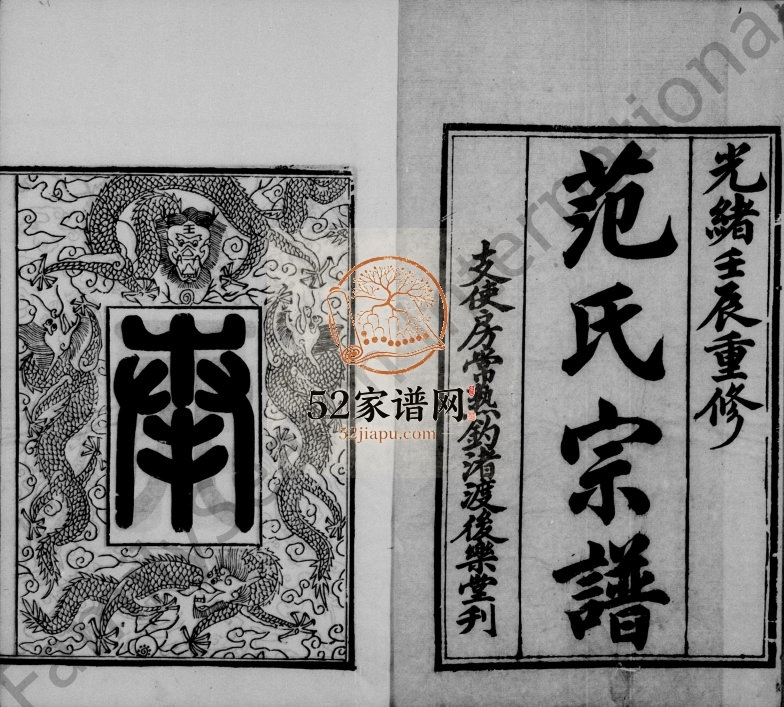 光緒壬辰重修
范氏宗譜
支使房常熟釣渚渡後樂堂刊
王
52家谱网
52jiapu.com